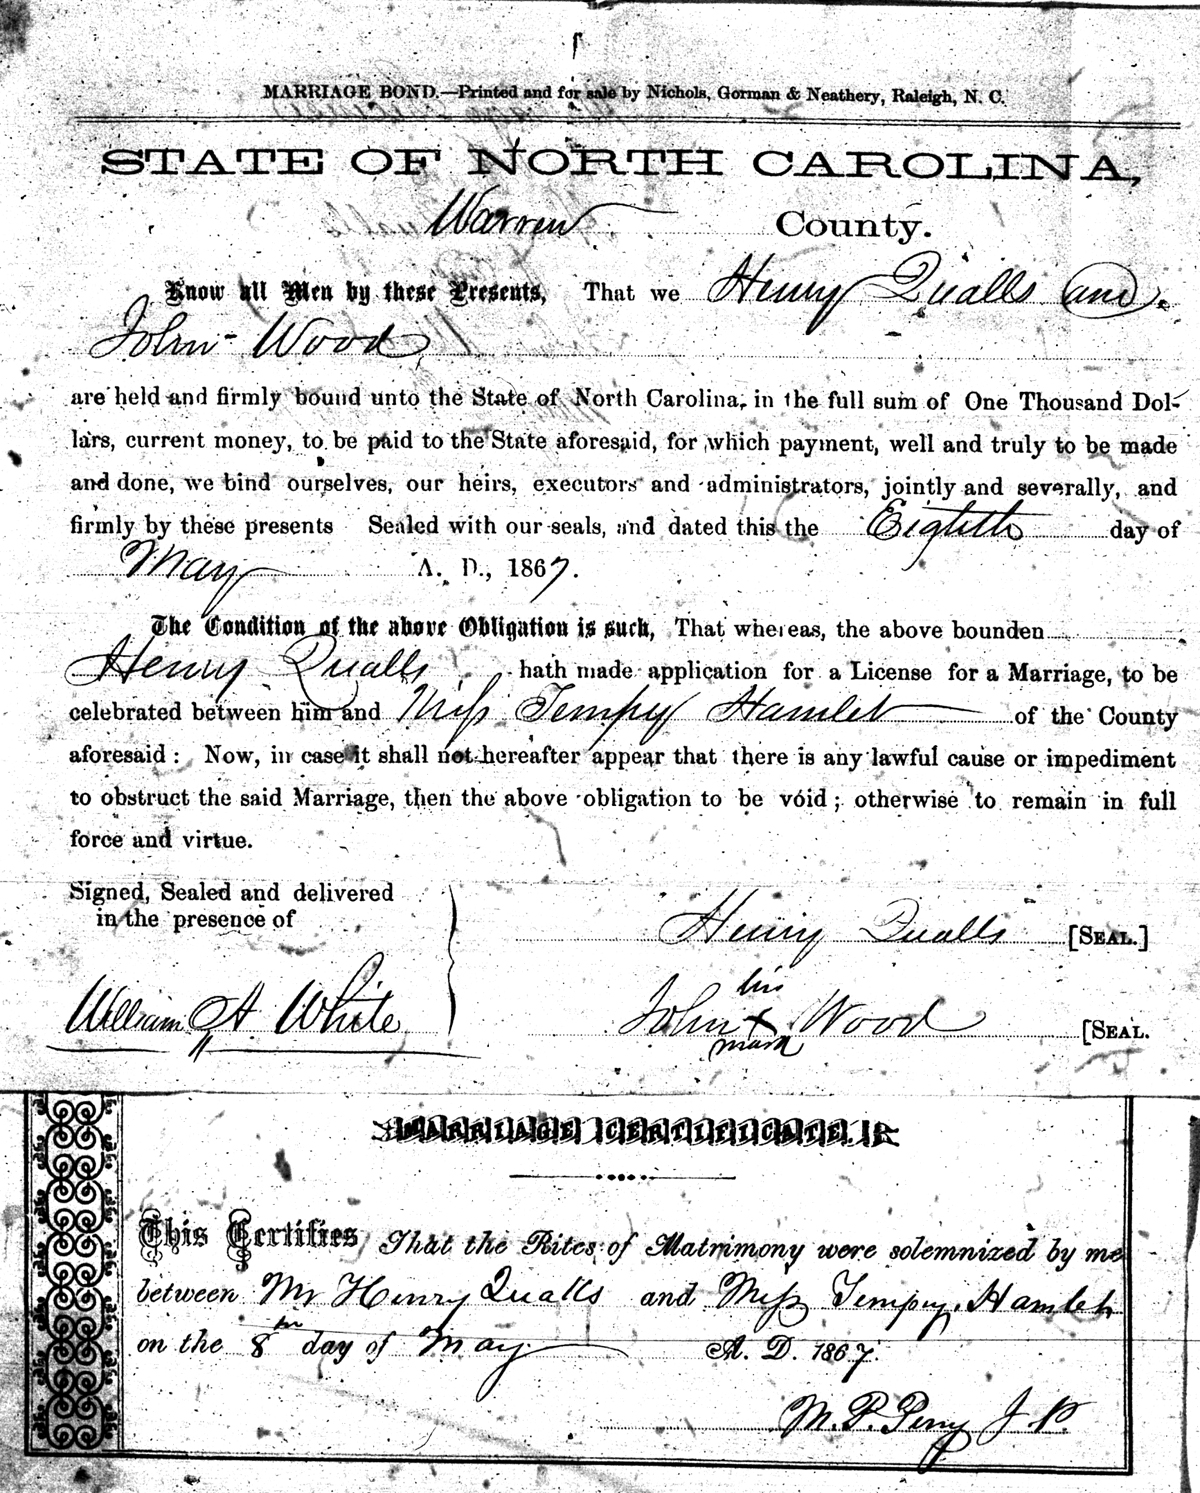 MARRIAGE BOND.—Printed and for sale by Nichols, Gorman & Neathery, Raleigh, N. C.
STATE OF NORTH CAROLINA,
Warren County.
Know all Men by these Presents, That we Henry Qualls and
John Wood
are held and firmly bound unto the State of North Carolina, in the full sum of One Thousand Dol-
lars, current money, to be paid to the State aforesaid, for which payment, well and truly to be made
and done, we bind ourselves, our heirs, executors and administrators, jointly and severally, and
firmly by these presents Sealed with our seals, and dated this the Eighth day of
May A. D., 1867.
The Condition of the above Obligation is such, That whereas, the above bounden
Henry Qualls hath made application for a License for a Marriage, to be
celebrated between him and Miss Tempy Hamlet of the County
aforesaid: Now, in case it shall not hereafter appear that there is any lawful cause or impediment
to obstruct the said Marriage, then the above obligation to be void; otherwise to remain in full
force and virtue.
Signed, Sealed and delivered
in the presence of
Henry Qualls [SEAL.]
his
William A White John x Wood [SEAL.
mark
MARRIAGE CERTIFICATE.
This Certifies That the Rites of Matrimony were solemnized by me
between Mr Henry Qualls and Miss Tempy Hamlet
on the 8th day of May A. D. 1867.
M. P. Perry J. P.